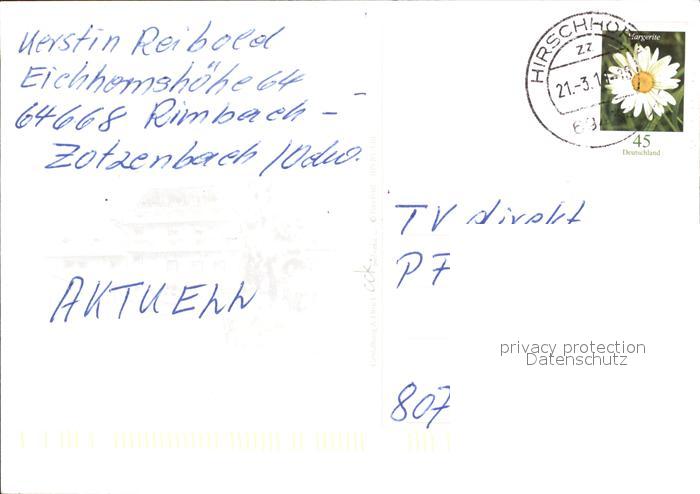 Kerstin Reibold
Eichhornshöhe 64
64668 Rimbach –
Zotzenbach /Odw.
AKTUELL
HIRSCHHO
zz
21.-3.1
694
Margerite
45
Deutschland
TV direkt
PF
privacy protection
Datenschutz
807